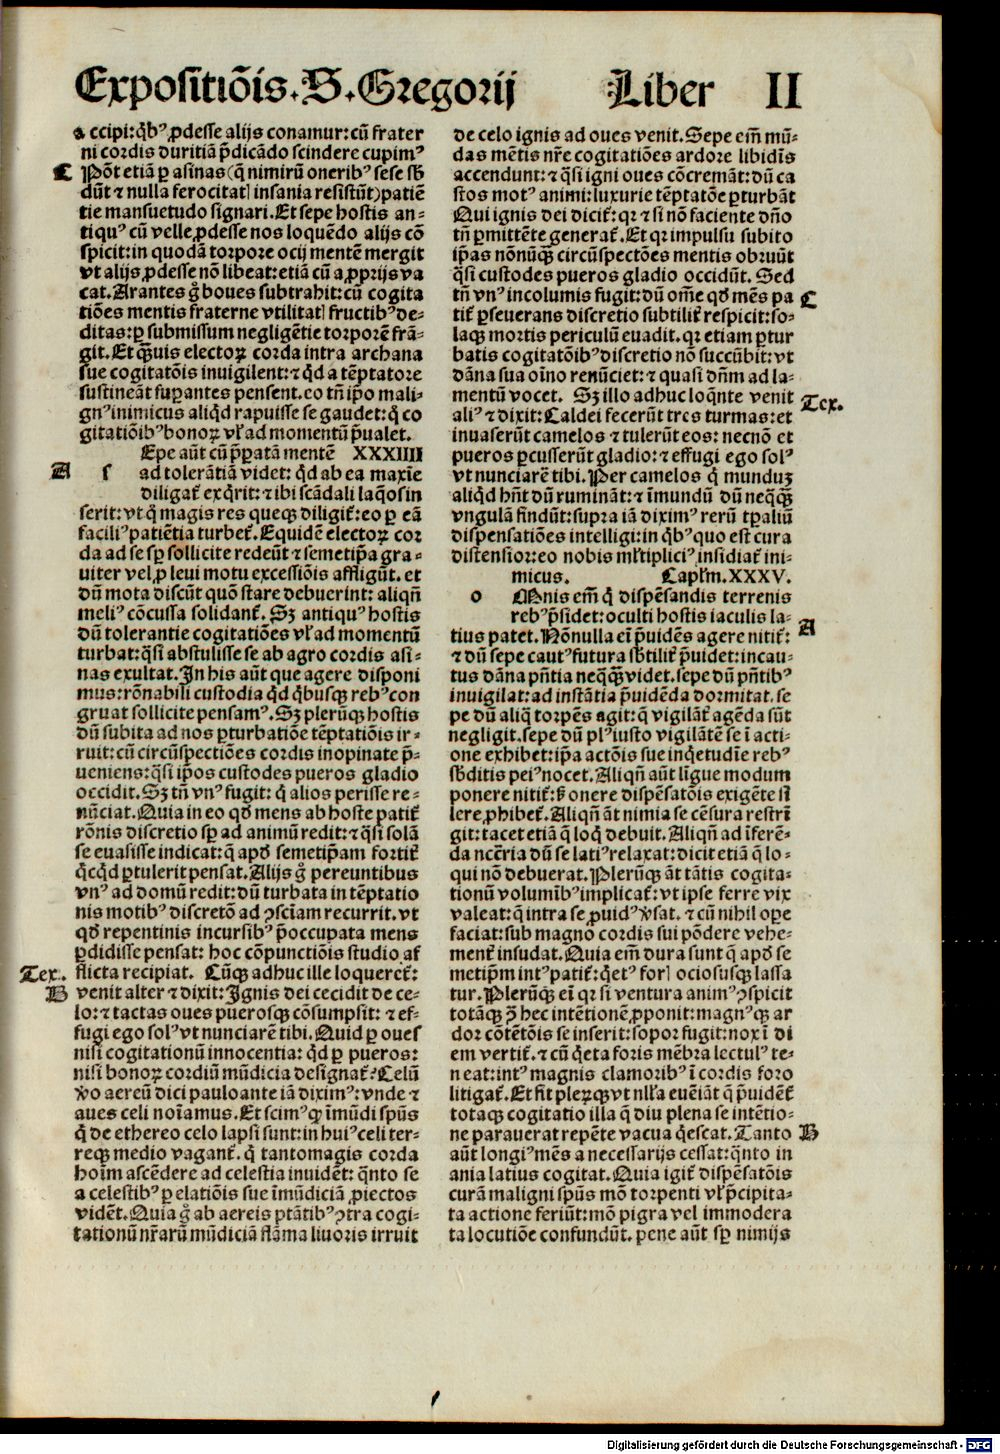 Expositiõis.S.Gregorij Liber II
accipi:qͥbꝰ ꝓdesse alijs conamur:cũ frater
ni cordis duritiã p̃dicãdo scindere cupimꝰ
C Põt etiã ꝑ asinas (q̃ nimirũ oneribꝰ sese sb̃
dũt ⁊ nulla ferocitatꝭ insania resistũt) patiẽ
tie mansuetudo signari. Et sepe hostis an⸗
tiquꝰ cũ velle ꝓdesse nos loquẽdo alijs cõ
spicit: in quodã torpore ocij mentẽ mergit
vt alijs ꝓdesse nõ libeat: etiã cũ a ꝓprijs va
cat. Arantes gͦ boues subtrahit: cũ cogita
tiões mentis fraterne vtilitatꝭ fructibꝰ de⸗
ditas: ꝑ submissum negligẽtie torporẽ frã⸗
git. Et qͣuis electoꝝ corda intra archana
sue cogitatõis inuigilent: ⁊ qͥd a tẽptatore
sustineãt suꝑantes pensent. eo tñ ip̃o mali⸗
gnꝰ inimicus aliqͥd rapuisse se gaudet: qͥ co
gitatiõibꝰ bonoꝝ vl̓ ad momentũ p̃ualet.
Epe aũt cũ p̃ꝑatã mentẽ XXXIIII
A s ad tolerãtiã videt: qͥd ab ea maxĩe
diligat᷑ exq̃rit: ⁊ ibi scãdali laq̃os in
serit: vt qͦ magis res queqꝫ diligit᷑: eo ꝑ eã
faciliꝰ patiẽtia turbet᷑. Equidẽ electoꝝ cor
da ad se sꝑ sollicite redeũt ⁊ semetip̃a gra⸗
uiter vel ꝓ leui motu excessiõis affligũt. et
dũ mota discũt quõ stare debuerint: aliqñ
meliꝰ cõcussa solidant᷑. Sꝫ antiquꝰ hostis
dũ tolerantie cogitatiões vl̓ ad momentũ
turbat: qͣsi abstulisse se ab agro cordis asi⸗
nas exultat. In his aũt que agere disponi
mus: rõnabili custodia qͥd qͥbusqꝫ rebꝰ con
gruat sollicite pensamꝰ. Sꝫ plerũqꝫ hostis
dũ subita ad nos ꝑturbatiõe tẽptatiõis ir⸗
ruit: cũ circũspectiões cordis inopinate p̃⸗
ueniens: qͣsi ip̃os custodes pueros gladio
occidit. Sꝫ tñ vnꝰ fugit: qͥ alios perisse re⸗
nũciat. Quia in eo qd̓ mens ab hoste patit᷑
rõnis discretio sꝑ ad animũ redit: ⁊ qͣsi solã
se euasisse indicat: q̃ apd̓ semetip̃am fortit᷑
qͥcqͥd ꝑtulerit pensat. Alijs gͦ pereuntibus
vnꝰ ad domũ redit: dũ turbata in tẽptatio
nis motibꝰ discretõ ad ꝯsciam recurrit. vt
qd̓ repentinis incursibꝰ p̃occupata mens
ꝑdidisse pensat: hoc cõpunctiõis studio af
Tex. flicta recipiat. Cũqꝫ adhuc ille loqueret᷑:
B venit alter ⁊ dixit: Ignis dei cecidit de ce⸗
lo: ⁊ tactas oues puerosqꝫ cõsumpsit: ⁊ ef⸗
fugi ego solꝰ vt nunciarẽ tibi. Quid ꝑ oues
nisi cogitationũ innocentia: qͥd ꝑ pueros:
nisi bonoꝝ cordiũ mũdicia designat᷑? Celũ
v̓o aereũ dici pauloante iã diximꝰ: vnde ⁊
aues celi noĩamus. Et scimꝰ qꝫ ĩmũdi spũs
qͥ de ethereo celo lapsi sunt: in huiꝰ celi ter⸗
reqꝫ medio vagant᷑. qͥ tantomagis corda
hoĩm ascẽdere ad celestia inuidẽt: qͣnto se
a celestibꝰ ꝑ elatiõis sue ĩmũdiciã ꝓiectos
vidẽt. Quia gͦ ab aereis ptãtibꝰ ꝯtra cogi⸗
tationũ nr̃arũ mũdiciã flãma liuoris irruit
de celo ignis ad oues venit. Sepe em̃ mũ⸗
das mẽtis nr̃e cogitatiões ardore libidĩs
accendunt: ⁊ qͣsi igni oues cõcremãt: dũ ca
stos motꝰ animi: luxurie tẽptatõe ꝑturbãt
Qui ignis dei dicit᷑: qꝛ ⁊ si nõ faciente dño
tñ ꝑmittẽte generat᷑. Et qꝛ impulsu subito
ip̃as nõnũqꝫ circũspectões mentis obruũt
qͣsi custodes pueros gladio occidũt. Sed
tñ vnꝰ incolumis fugit: dũ om̃e qd̓ mẽs pa C
tit᷑ ꝑseuerans discretio subtilit᷑ respicit: so⸗
laqꝫ mortis periculũ euadit. qꝛ etiam ꝑtur
batis cogitatõibꝰ discretio nõ succũbit: vt
dãna sua oĩno renũciet: ⁊ quasi dñm ad la⸗
mentũ vocet. Sꝫ illo adhuc loq̃nte venit Tex.
aliꝰ ⁊ dixit: Caldei fecerũt tres turmas: et
inuaserũt camelos ⁊ tulerũt eos: necnõ et
pueros ꝑcusserũt gladio: ⁊ effugi ego solꝰ
vt nunciarẽ tibi. Per camelos qͥ munduꝫ
aliqͥd hñt dũ ruminãt: ⁊ ĩmundũ dũ neqͣqꝫ
vngulã findũt: supra iã diximꝰ rerũ tꝑaliũ
dispensatiões intelligi: in qͥbꝰ quo est cura
distensior: eo nobis ml̓tipliciꝰ insidiat᷑ ini⸗
micus. Capl̓m. XXXV.
o Mnis em̃ qͥ dispẽsandis terrenis
rebꝰ p̃sidet: occulti hostis iaculis la⸗ A
tius patet. Nõnulla ei̓ p̃uidẽs agere nitit᷑:
⁊ dũ sepe cautꝰ futura sb̃tilit᷑ p̃uidet: incau⸗
tus dãna p̃ntia neqͣqꝫ videt. sepe dũ p̃ntibꝰ
inuigilat: ad instãtia p̃uidẽda dormitat. se
pe dũ aliq̃ torpẽs agit: q̃ vigilãt᷑ agẽda sũt
negligit. sepe dũ plꝰ iusto vigilãtẽ se ĩ acti⸗
one exhibet: ip̃a actõis sue inq̃etudĩe rebꝰ
sb̃ditis peiꝰ nocet. Aliqñ aũt lĩgue modum
ponere nitit᷑: sꝫ onere dispẽsatõis exigẽte si
lere ꝓhibet᷑. Aliqñ aũt nimia se cẽsura restrĩ
git: tacet etiã q̃ loqͥ debuit. Aliqñ ad ĩferẽ⸗
da ncc̃ria dũ se latiꝰ relaxat: dicit etiã q̃ lo⸗
qui nõ debuerat. Plerũqꝫ aũt tãtis cogita⸗
tionũ volumĩbꝰ implicat᷑: vt ipse ferre vix
valeat: q̃ intra se ꝓuidꝰ v̓sat. ⁊ cũ nihil oꝑe
faciat: sub magno cordis sui põdere vehe⸗
ment᷑ insudat. Quia em̃ dura sunt q̃ apd̓ se
metip̃m intꝰ patit᷑: qͥetꝰ forꝭ ociosusqꝫ lassa
tur. Plerũqꝫ ei̓ qꝛ si ventura animꝰ ꝯspicit
totãqꝫ ꝯ̃ hec intẽtionẽ ꝓponit: magnꝰqꝫ ar
dor cõtẽtõis se inserit: sopor fugit: nox ĩ di
em vertit᷑. ⁊ cũ qͥeta foris mẽbra lectulꝰ te⸗
neat: intꝰ magnis clamoribꝰ ĩ cordis foro
litigat᷑. Et fit pleꝝqꝫ vt nl̓la eueniãt q̃ p̃uidẽt᷑
totaqꝫ cogitatio illa q̃ diu plena se intẽtio⸗
ne parauerat repẽte vacua qͥescat. Tanto B
aũt longiꝰ mẽs a necessarijs cessat: qͣnto in
ania latius cogitat. Quia igit᷑ dispẽsatõis
curãm maligni spũs mõ torpenti vl̓ p̃cipita⸗
ta actione feriũt: mõ pigra vel immodera
ta locutiõe confundũt. pene aũt sꝑ nimijs
Digitalisierung gefördert durch die Deutsche Forschungsgemeinschaft - DFG